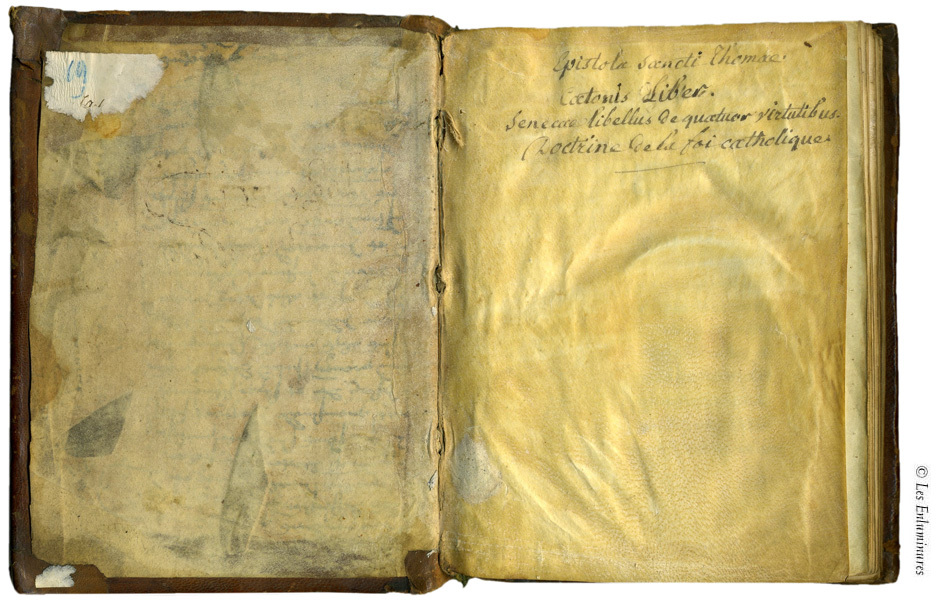 19
Ca. 1
Epistola sancti Thomae.
Catonis Liber.
Senecae libellus de quatuor virtutibus.
Doctrine de la foi catholique.
© Les Enluminures